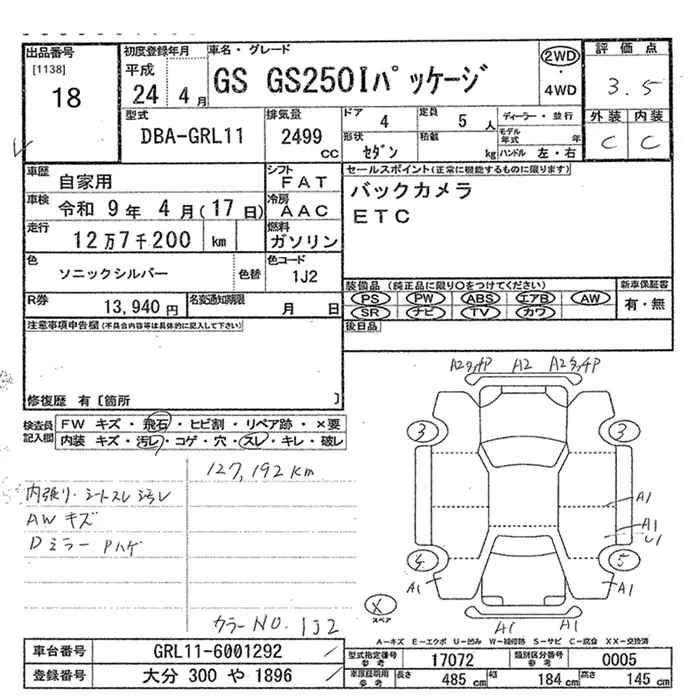 出品番号
[1138]
18
初度登録年月
平成
24 4月
車名・グレード
GS GS250Iパッケージ
2WD
・
4WD
評価点
3.5
外装 内装
C C
型式
DBA-GRL11
排気量
2499
CC
ドア 4
定員 5人
形状 セダン
積載 kg
ディーラー・並行
モデル年式 年
ハンドル 左・右
車歴
自家用
シフト
FAT
車検 令和 9年 4月(17日)
冷房
AAC
走行
12万7千200 km
燃料
ガソリン
色
ソニックシルバー
色替
色コード
1J2
R券
13,940円
名変通知期限
月 日
セールスポイント(正常に機能するものに限ります)
バックカメラ
ETC
装備品 (純正品に限り○をつけてください)
PS PW ABS エアB AW
SR ナビ TV カワ
新車保証書
有・無
後日品
注意事項申告欄(不具合内容等は具体的に記入して下さい)
修復歴 有〔箇所 〕
検査員記入欄
FW キズ・飛石・ヒビ割・リペア跡・×要
内装 キズ・汚レ・コゲ・穴・スレ・キレ・破レ
127,192km
内張り・シートスレ汚レ
AWキズ
Dミラー Pハゲ
カラーNO. 1J2
A2 A2
3 3
A1
A1
U1
4 5
A1 A1
A1 A1
X
スペア
A-キズ E-エクボ U-凹み W-補修跡 S-サビ C-腐食 XX-交換済
車台番号
GRL11-6001292
登録番号
大分 300 や 1896
型式指定番号
参考
17072
類別区分番号
参考
0005
車庫証明用
参考
長さ 485cm
幅 184cm
高さ 145cm